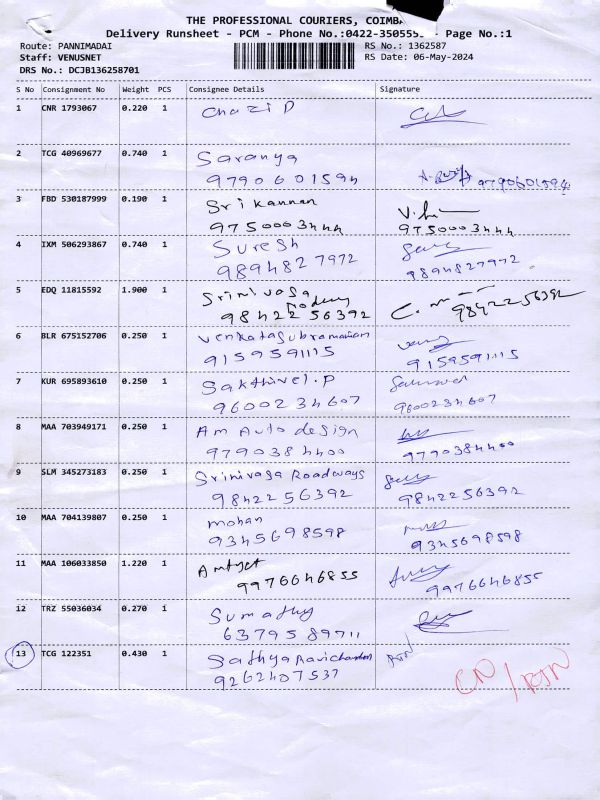 THE PROFESSIONAL COURIERS, COIMBA
Delivery Runsheet - PCM - Phone No.:0422-350555 - Page No.:1
Route: PANNIMADAI RS No.: 1362587
Staff: VENUSNET RS Date: 06-May-2024
DRS No.: DCJB136258701
S No Consignment No Weight PCS Consignee Details Signature
1 CNR 1793067 0.220 1 Ghazi D
2 TCG 40969677 0.740 1 Saranya
9790601594 9790601594
3 FBD 530187999 0.190 1 Sri kannan
9750003444 9750003444
4 IXM 506293867 0.740 1 Suresh
9894827972 9894827972
5 EDQ 11815592 1.900 1 Srinivasa
9842256392 9842256392
6 BLR 675152706 0.250 1 Venkatasubramanian
9159591115 9159591115
7 KUR 695893610 0.250 1 Sakthivel.P
9600234607 9600234607
8 MAA 703949171 0.250 1 Am Auto design
9790384400 9790384400
9 SLM 345273183 0.250 1 Srinivasa Roadways
9842256392 9842256392
10 MAA 704139807 0.250 1 mohan
9345698598 9345698598
11 MAA 106033850 1.220 1
9976646855 9976646855
12 TRZ 55036034 0.270 1 Sumathy
6379589711
13 TCG 122351 0.430 1 Sathya Ravichandran RTN
9262407537 CN/RTN